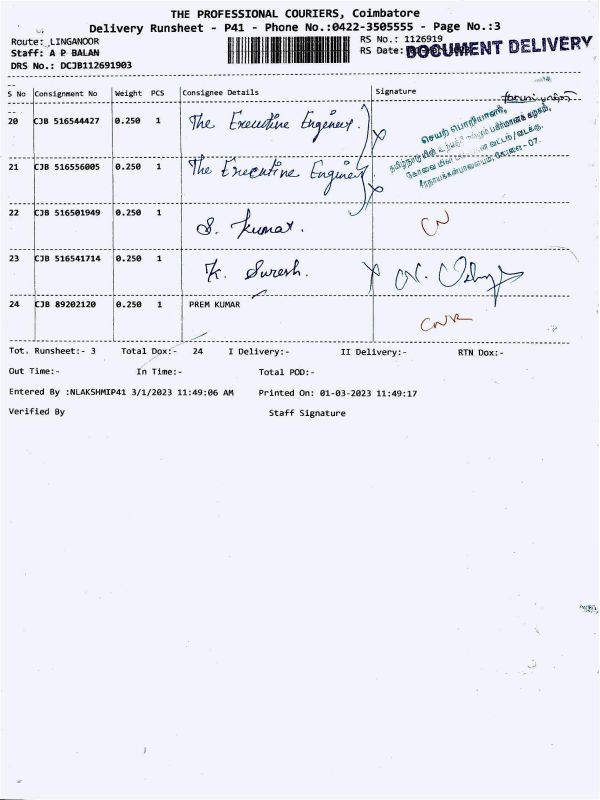 THE PROFESSIONAL COURIERS, Coimbatore
Delivery Runsheet - P41 - Phone No.:0422-3505555 - Page No.:3
Route: LINGANOOR
RS No.: 1126919
Staff: A P BALAN
RS Date:
DOCUMENT DELIVERY
DRS No.: DCJB112691903
S No Consignment No Weight PCS Consignee Details Signature
20 CJB 516544427 0.250 1 The Executive Engineer.
செயற் பொறியாளர்,
21 CJB 516556005 0.250 1 The Executive Engineer
22 CJB 516501949 0.250 1 S. Kumar.
23 CJB 516541714 0.250 1 K. Suresh.
24 CJB 89202120 0.250 1 PREM KUMAR
Tot. Runsheet:- 3 Total Dox:- 24 I Delivery:- II Delivery:- RTN Dox:-
Out Time:- In Time:- Total POD:-
Entered By :NLAKSHMIP41 3/1/2023 11:49:06 AM Printed On: 01-03-2023 11:49:17
Verified By Staff Signature